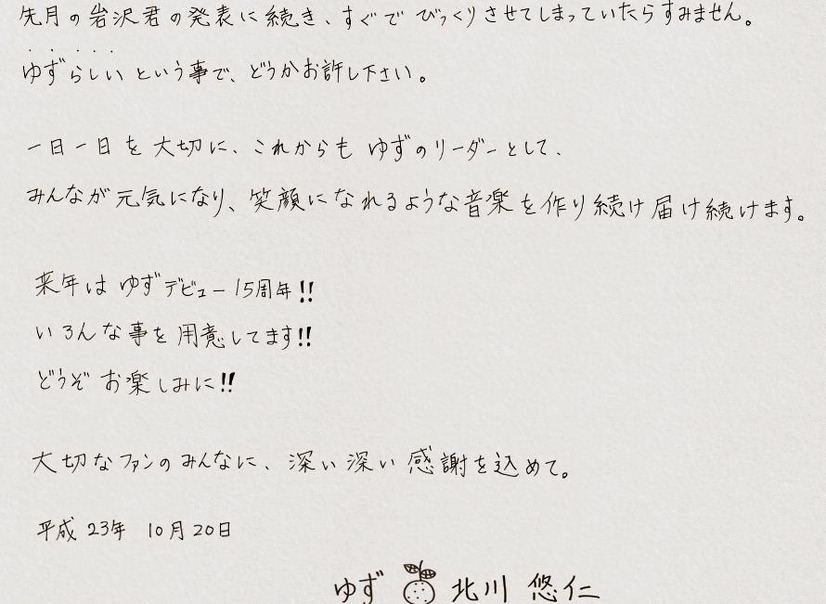 先月の岩沢君の発表に続き、すぐでびっくりさせてしまっていたらすみません。
ゆずらしいという事で、どうかお許し下さい。
一日一日を大切に、これからもゆずのリーダーとして、
みんなが元気になり、笑顔になれるような音楽を作り続け届け続けます。
来年はゆずデビュー15周年!!
いろんな事を用意してます!!
どうぞお楽しみに!!
大切なファンのみんなに、深い深い感謝を込めて。
平成23年 10月20日
ゆず 北川 悠仁